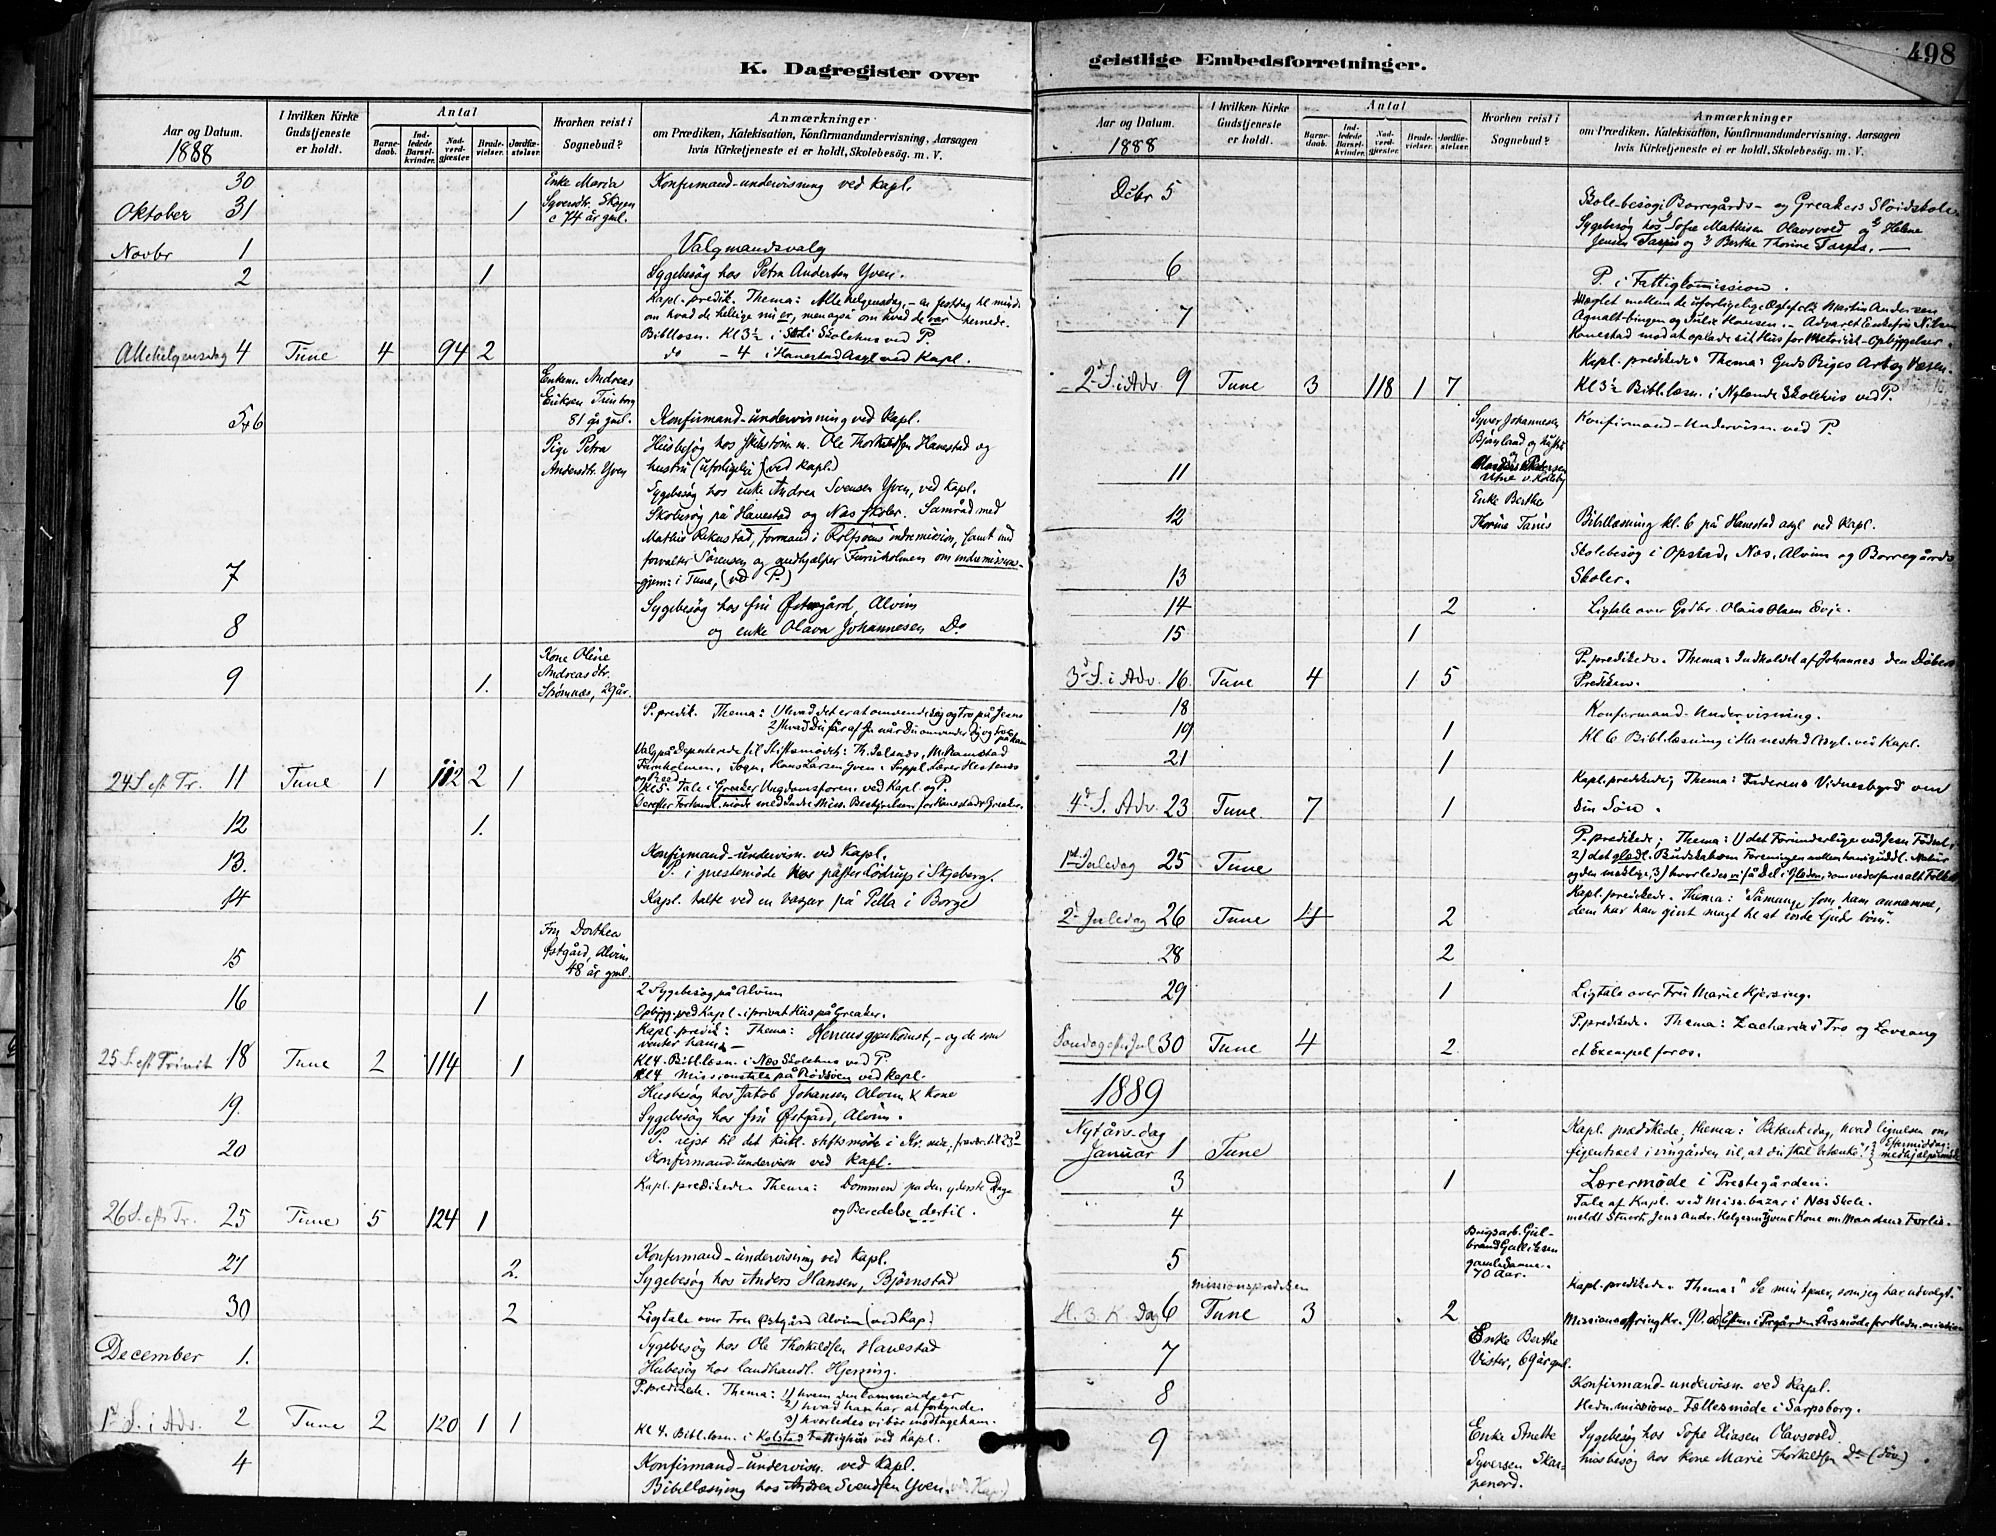 K. Dagregister over
Aar og Datum.
1888
I hvilken Kirke Gudstjeneste er holdt.
Antal
Barnedaab.
Indledede Barselkvinder.
Nadverdgjester
Brudevielser.
Jordfæstelser.
Hvorhen reist i Sognebud?
Anmærkninger
om Prædiken, Katekisation, Konfirmandundervisning, Aarsagen
hvis Kirketjeneste ei er holdt, Skolebesøg. m. V.
30 Enke Maria Konfirmand-undervisning ved Kapl.
Oktober 31 1 Syversdtr. Skøyen
c 74 år gml.
Novbr 1 Valgmandsvalg
2 1 Sygebesøg hos Petra Andersen Yven.
Kapl. predik. Thema: Allehelgensdag, - en festdag til mind.
om hvad de hellige nu er, men også om hvad de var hernede.
Bibllæsn. Kl 3½ i Skolehus ved P.
Allehelgensdag 4 Tune 4 94 2 do - 4 i Hanestad Asyl ved Kapl.
Enkem. Andreas
Eriksen Trinborg
5+6 81 år gml. Konfirmand-undervisning ved Kapl.
Pige Petra Husbesøg hos Ole Thorkildsen Hanestad og
Andersdtr. Yven hustru (uforligelige) (ved Kapl.)
Sygebesøg hos enke Andrea Svensen Yven, ved Kapl.
Skolebesøg på Hanestad og Næs skoler. Samråd med
Mathis Rekustad, formand i Rolfsøens indremission, samt med
forvalter Sørensen og medhjælper Furuholmen om indremissions-
7 gjern: i Tune, (ved P.)
Sygebesøg hos fru Østgård, Alvim
8 og enke Olava Johannesen Do
Kone Oline
9 1. Andreasdtr.
Strømnæs, 29 år.
P. predik. Thema: 1) hvad det er at omvende sig og tro på Jesus
2) hvad Du får af Je når Du omvender Dig og tror på ham
Valg på Deputerede til Stiftsmødet: Th. Jelsnæs, M. Ramstad
Furuholmen, Sogn, Hans Larsen Yven. Suppl. Lærer Hestenæs
24 S. eft Tr. 11 Tune 1 112 2 1 Kl 5. Tale i Greaker Ungdomsforen. ved Kapl. og P.
Derefter Forhandl. møde med Indre Miss. Bestyrelsen for Hanestad & Greaker.
12 1.
13. Konfirmand-undervisn. ved Kapl.
P. i prestemøde hos pastor Lødrup i Skjeberg.
14 Kapl. talte ved en bazar på Pella i Borge
Fru Dorthea
15 Østgård, Alvim
48 år gml.
16 1 2 Sygebesøg på Alvim
Opbygg. ved Kapl. i privat Hus på Greaker.
Kapl. predik: Thema: Herrens gjenkomst, - og de som
venter ham. -
25 S. eft Trinit 18 Tune 2 114 1 Kl 4. Bibl. læsn. i Næs Skolehus ved P.
Kl 4 Missionstale på Rødsøen ved Kapl.
19. Husbesøg hos Jakob Johansen Alvim & Kone
Sygebesøg hos fru Østgård, Alvim.
20 P. rejst til det kirkl. stiftsmøde i Kr.
Konfirmand-undervisn ved Kapl.
Kapl. predikede Thema: Dommen på den yderste Dag
26 S. eft Tr. 25 Tune 5 124 1 og Beredelse dertil.
27 2. Konfirmand-undervisning ved Kapl.
Sygebesøg hos Anders Hansen, Bjørnstad
30 2 Ligtale over Fru Østgård Alvim (ved Kap)
December 1. Sygebesøg hos Ole Thorkildsen Hanestad
Husbesøg hos landhandl. Hjersing.
P. predikede. Thema: 1) hvem den kommende er
2) hvad han har at forkynde.
1ste S. i Adv. 2 Tune 2 120 1 1 3) hvorledes vi bør modtage ham.
Kl 4. Bibl. læsn. i Kolstad Fattighus ved Kapl.
4 Konfirmand-undervisn. ved Kapl.
Bibellæsning hos Andrea Svendsen Yven. (ved Kap)
geistlige Embedsforretninger.
498
Aar og Datum.
1888
I hvilken Kirke Gudstjeneste er holdt.
Antal
Barnedaab.
Indledede Barselkvinder.
Nadverdgjester.
Brudevielser.
Jordfæstelser.
Hvorhen reist i Sognebud?
Anmærkninger
om Prædiken, Katekisation, Konfirmandundervisning, Aarsagen
hvis Kirketjeneste ei er holdt, Skolebesøg. m. V.
Dcbr 5 Skole-besøg i Borregårds- og Greakers Sløidskole.
Sygebesøg hos Sofie Mathisen Olavsvold og Helene
Jensen Tarpis og 3) Berthe Thorine Tarpis. -
6 P. i Fattigkommission.
7 Mæglet mellem de uforligelige Ægtefolk Martin Andersen
Agnalt-bingen og Julie Hansen. - Advaret Enkefru Nilsen
Hanestad mod at oplade sit Hus for Metodist-Opbyggelser.
Kapl. predikede: Thema: Guds Riges Art og Væsen.
2d S. i Adv. 9 Tune 3 118 1 7 Kl 3½ Bibl. læsn. i Nylande Skolehus ved P.
Syver Johannesen Konfirmand-Undervisn. ved P.
Bjørnland og hustru
og
11 v. Kolleby
Enke Berthe
12 Thorine Tarris Bibellæsning kl. 6 på Hanestad asyl ved Kapl.
Skolebesøg i Opstad, Næs, Alvim og Borregårds
13 Skoler.
14 2 Ligtale over Gsdbr. Olaus Olsen Evje.
15 1
P. predikede. Thema: Indholdet af Johannes den Døbers
3d S. i Adv. 16 Tune 4 1 5 Prediken.
18 Konfirmand-Undervisning.
19 1 Kl 6 Bibl. læsning i Hanestad Asyl. ved Kapl.
21 1
Kapl. predikede; Thema: Faderens Vidnesbyrd om
4d S. Adv. 23 Tune. 7 1 sin Søn.
P. predikede; Thema: 1) det Forunderlige ved Jesu Fødsel;
1ste Juledag 25 Tune 2) det glædl. Budskab om Foreningen mellem hans guddl. Natur
og den mskelige; 3) hvorledes vi få Del i Glæden, som vederfares alt Folket
Kapl. predikede. Thema: "Såmange som ham annamme,
2d Juledag 26 Tune 4 2 dem har han givet magt til at vorde Guds børn".
28 2
29 1 Ligtale over Fru Marie Hjersing.
P. predikede. Thema: Zacharias' Tro og Lovsang
Søndag eft. Jul 30 Tune 4 2. et Exempel for os.
1889
Nytårsdag Kapl. predikede, thema: "Betænk idag, hvad lignelsen om
Januar 1 Tune figentræet i vingården vil, at du skal betænke". Eftermiddag: medhjælpermøde
3 1 Lærermøde i Prestegården.
4 Tale af Kapl. ved Miss. bazar i Næs Skole.
meldt Stuert Jens Andr. Helgesen Yvens Kone om Mandens Forlis.
Brugsarb. Gul-
5 brand Gulliksen
70 Aar.
Missionsprediken Kapl. predikede. Thema: "Se min tjener, som jeg har udvalgt."
H. 3 K. Dag 6 Tune 3 2 Missionsoffring Kr. 90. i Prgården Årsmøde for Hedn. mission
7 Enke Berthe
Vister, 69 år gml.
8 Konfirmand-undervisn. ved Kapl.
Hedn. missions-Fællesmøde i Sarpsborg.
9 Enke Anette Sygebesøg hos Sofie Eliasen Olavsvold
Syversen Skar- husbesøg hos kone Marie Thorkildsen Do (døv)
penord.